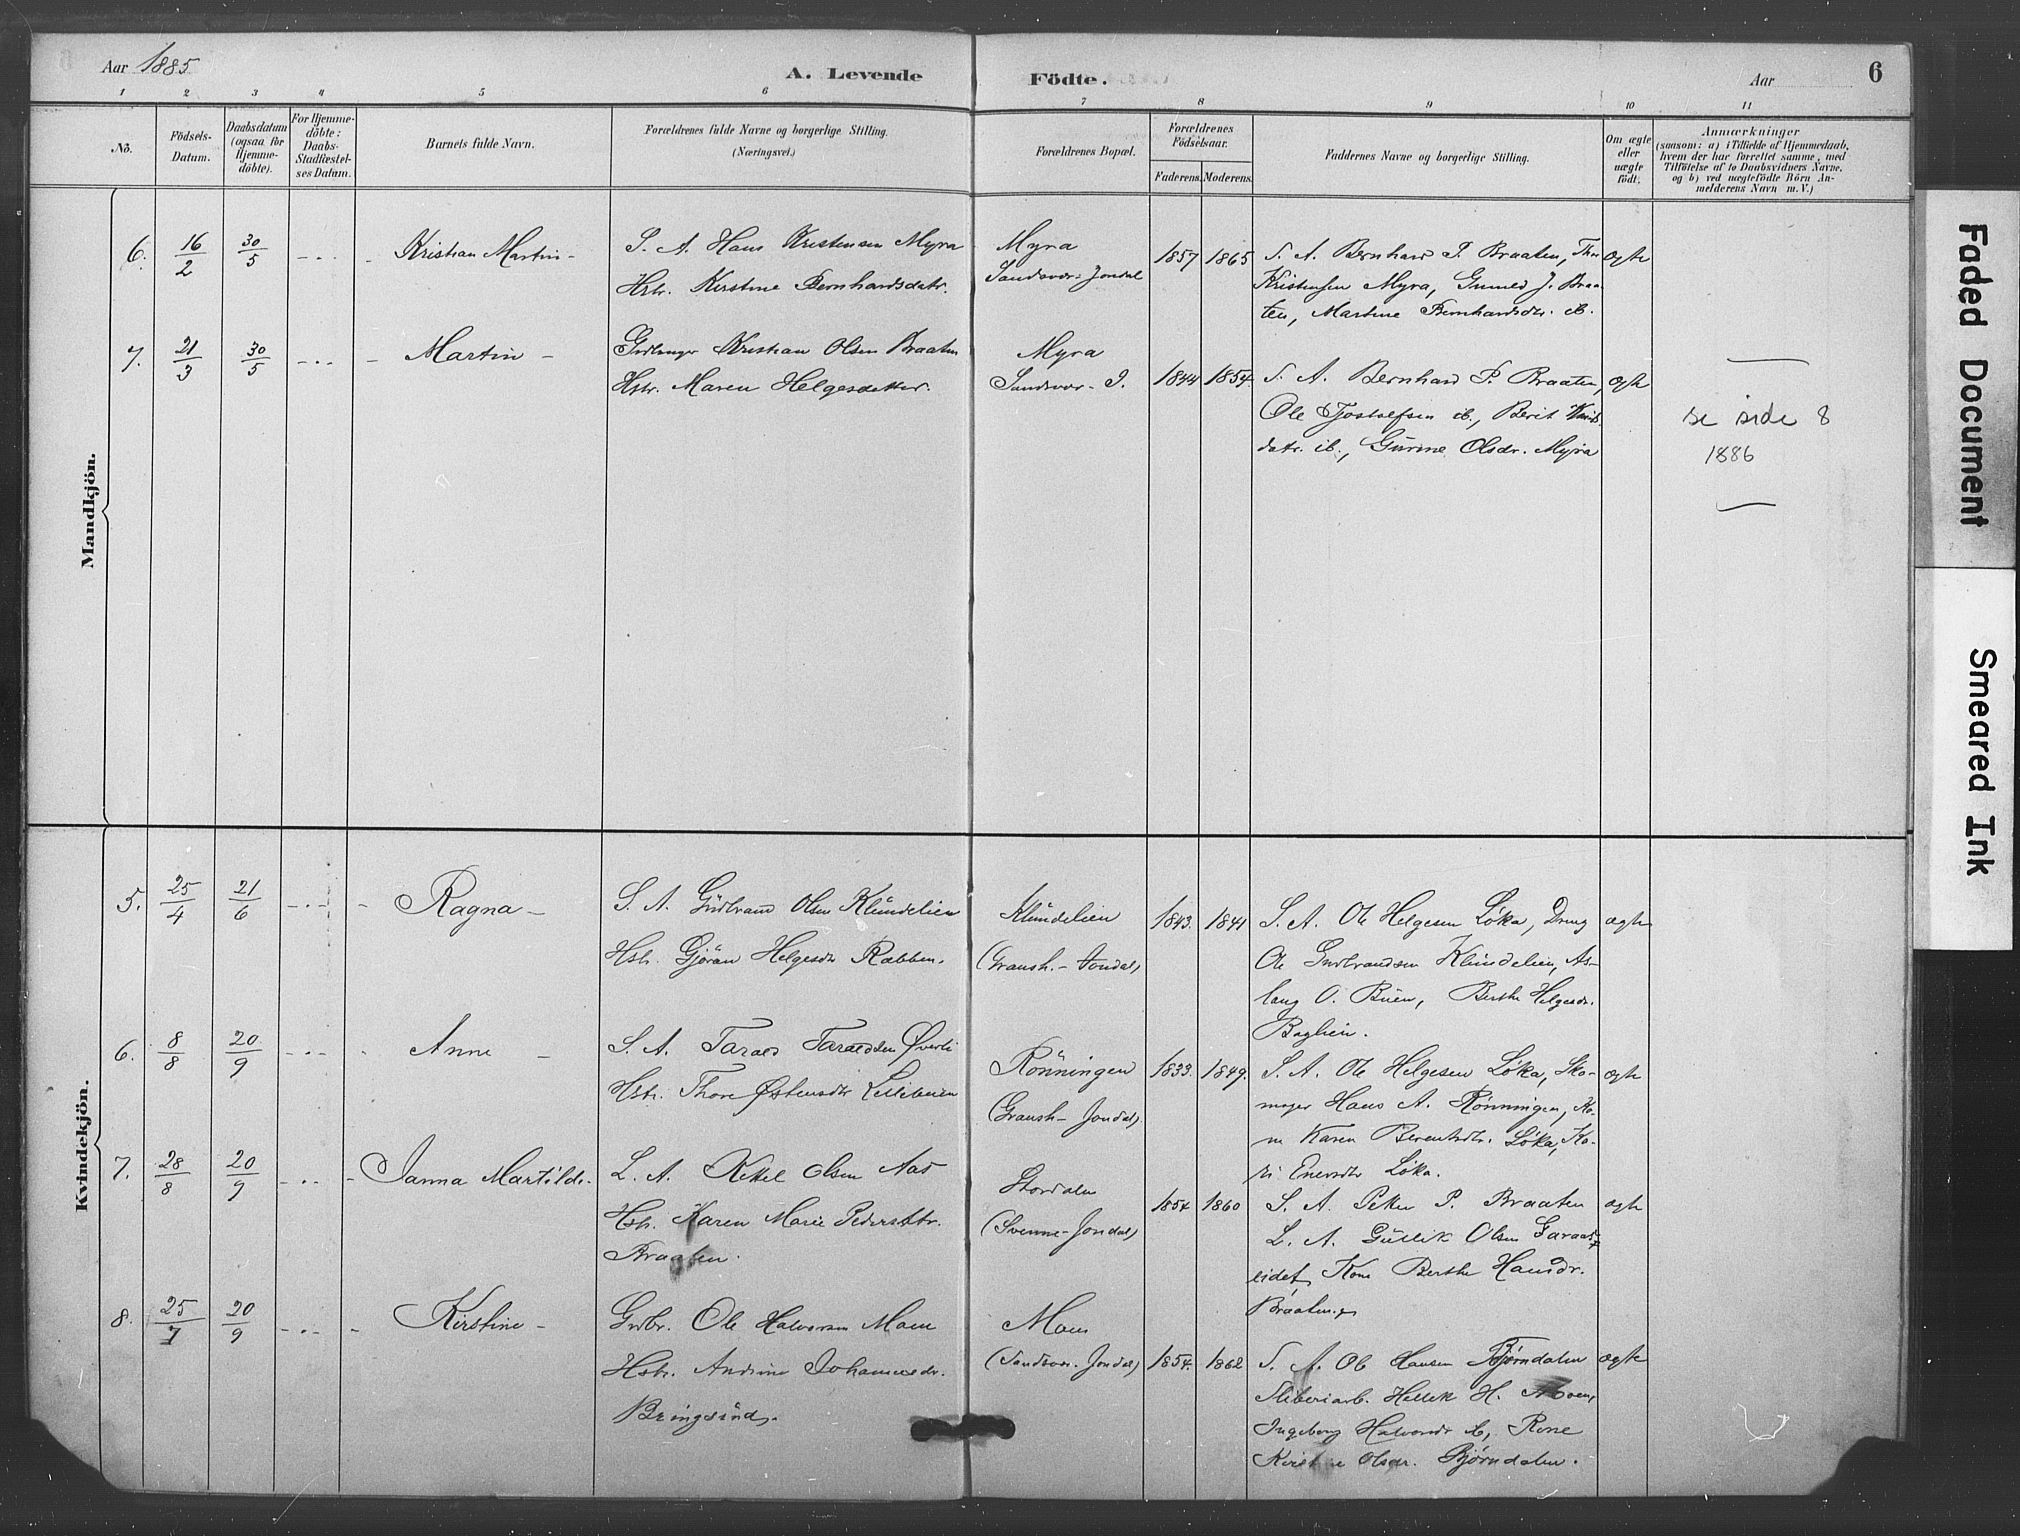 Aar 1885
A. Levende Födte.
Aar
6
1 2 3 4 5 6 7 8 9 10 11
No.
Födsels-
Datum.
Daabsdatum
(ogsaa for
Hjemme-
döbte).
For Hjemme-
döbte:
Daabs-
Stadfæstel-
ses Datum.
Barnets fulde Navn.
Forældrenes fulde Navne og borgerlige Stilling.
(Næringsvei.)
Forældrenes Bopæl.
Forældrenes
Födselsaar.
Faderens. Moderens.
Faddernes Navne og borgerlige Stilling.
Om ægte
eller
uægte
födt.
Anmærkninger
(saasom: a) i Tilfælde af Hjemmedaab,
hvem der har forrettet samme, med
Tilföielse af to Daabsvidners Navne,
og b) ved uægtefödte Börn An-
melderens Navn m. V.)
Mandkjön.
6. 16/2 30/5 Kristian Martin
S. A. Hans Kristensen Myra
Hstr. Kirstine Bernhardsdatr.
Myra
Sandsvær-Jondal
1857 1865
S. A. Bernhard P. Braaten, Thor
Kristensen Myra, Gunild J. Braa-
ten, Martine Bernhardsdtr. ib.
ægte
7. 21/3 30/5 Martin
Grdbruger Kristian Olsen Braaten
Hstr. Maren Helgesdatter.
Myra
Sandsvær- J.
1844 1854
S. A. Bernhard P. Braaten,
Ole Tostolfsen ib., Berit Knuds-
datr. ib., Gurine Olsdr. Myra
ægte
se side 8
1886
Kvindekjön.
5. 25/4 21/6 Ragna
S. A. Gudbrand Olsen Klundelien
Hstr. Gjöran Helgesdtr Rabben.
Klundelien
(Gransh.-Jondal)
1843. 1841
S. A. Ole Helgesen Løka, Dreng
Ole Gudbrandsen Klundelien, As-
laug O. Buen, Berthe Helgesdr.
Baglien.
ægte
6. 8/8 20/9 Anne
S. A. Tarald Taraldsen Øverli
Hstr. Thore Østensdtr Lillebuen
Rönningen
(Gransh-Jondal)
1833. 1849.
S. A. Ole Helgesen Løka, Sko-
mager Hans A. Rönningen, Ko-
ne Karen Berentsdtr. Løka, Ka-
ri Enersdtr Løka.
ægte
7. 28/8 20/9 Janna Martilde.
L. A. Kittel Olsen Aas
Hstr. Karen Marie Pedersdtr.
Braaten.
Stordalen
(Svenne-Jondal)
1854 1860
S. A. Peter P. Braaten
L. A. Gullik Olsen
eidet, Kone Berthe Hansdr.
Braaten.
ægte
8. 25/7 20/9 Kirstine
Grdbr. Ole Halvorsen Moen
Hstr. Andrine Johannesdr.
Bringsrud.
Moen
(Sandsvær-Jondal)
1854. 1862
S. A. Ole Hansen Bjørndalen
Sliberiarb. Hellek H. Moen,
Ingeborg Halvorsdr ib, Kone
Kirstine Olsdr. Bjørndalen.
ægte
Faded Document
Smeared Ink